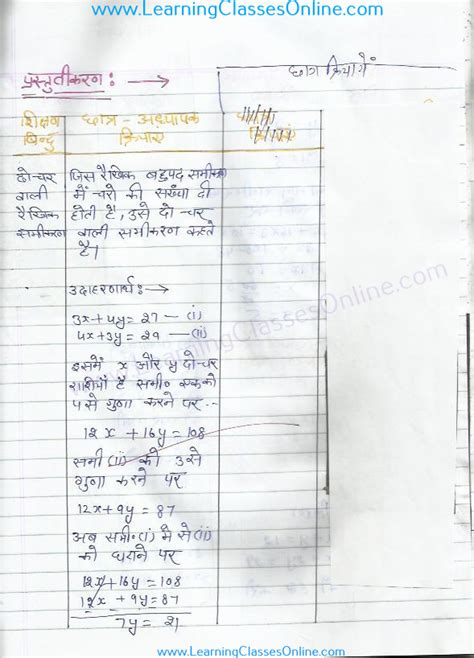 www.LearningClassesOnline.com
छात्र क्रियायें
प्रस्तुतीकरण :- →
शिक्षण बिन्दु
छात्र - अध्यापक क्रियाएं
दो-चर वाली रैखिक समीकरण
जिस रैखिक बहुपद समीकरण
में चरो की संख्या दो
होती है, उसे दो-चर
वाली समीकरण कहते
है।
उदाहरणार्थ :- →
3x + 4y = 27 — (i)
4x + 3y = 29 — (ii)
LearningClassesOnline.com
इसमें x और y दो-चर
राशियाँ है समी० एक को
4 से गुणा करने पर --
12x + 16y = 108
समी (ii) को 3 से
गुणा करने पर
12x + 9y = 87
अब समी० (i) में से (ii)
को घटाने पर
12x + 16y = 108
12x + 9y = 87
7y = 21
www.LearningClassesOnline.com